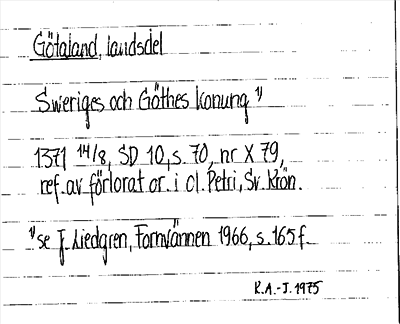 Götaland, landsdel
Sweriges och Göthes Konung 1)
1371 14/8, SD 10, s. 70, nr X 79,
ref. av förlorat or. i Ol. Petri, Sv. Krön.
1) se J. Liedgren, Fornvännen 1966, s. 165 f.
K.A.-J. 1975